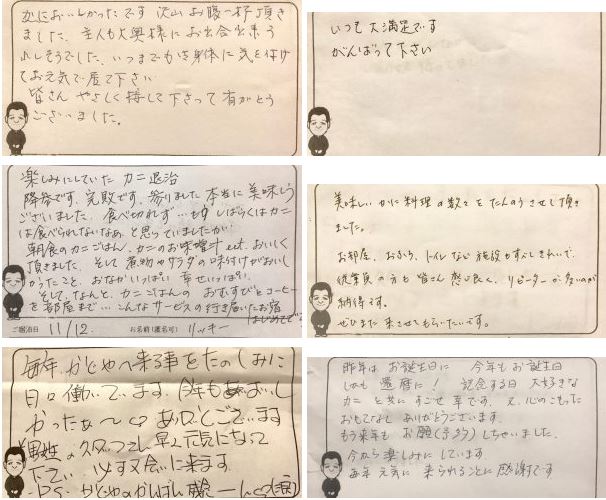 かにおいしかったです 沢山お腹一杯頂き
ました。主人も大奥様にお出会出来う
れしそうでした。いつまでもお身体に気を付け
てお元気で居て下さい
皆さん やさしく接して下さって有がとう
ございました。
いつも大満足です
がんばって下さい
楽しみにしていた カニ退治
降参です。完敗です。参りました 本当に美味しう
ございました。食べ切れず…もう しばらくはカニ
は食べられないなぁ、と思っていましたが…
朝食のカニごはん、カニのお味噌汁 ect. おいしく
頂きました。そして煮物やサラダの味付けがおいし
かったこと。おなかいっぱい 幸せいっぱい。
そして、なんと、カニごはんの おむすびとコーヒー
を部屋まで…こんなサービスの行き届いたお宿
はじめてです
ご宿泊日 11/12. お名前(匿名可) リッキー
美味しいかに料理の数々をたんのうさせて頂き
ました。
お部屋、おふろ、トイレなど施設もすべてきれいで、
従業員の方も皆さん感じ良く、リピーターが多いのが
納得です。
ぜひまた来させてもらいたいです。
毎年、かじゅへ来る事をたのしみに
日々働いています。今年もおいし
かったぁ〜♡ ありがとうございます
男性の 早く元気になって
下さい 必ず又会いに来ます。
昨年は お誕生日に 今年もお誕生日
しかも 還暦に! 記念する日 大好きな
カニと共にすごせ 幸です。又、心のこもった
おもてなし ありがとうございます。
もう来年も お願(予約)しちゃいました。
今から楽しみにしています
毎年 元気に 来られることに 感謝です